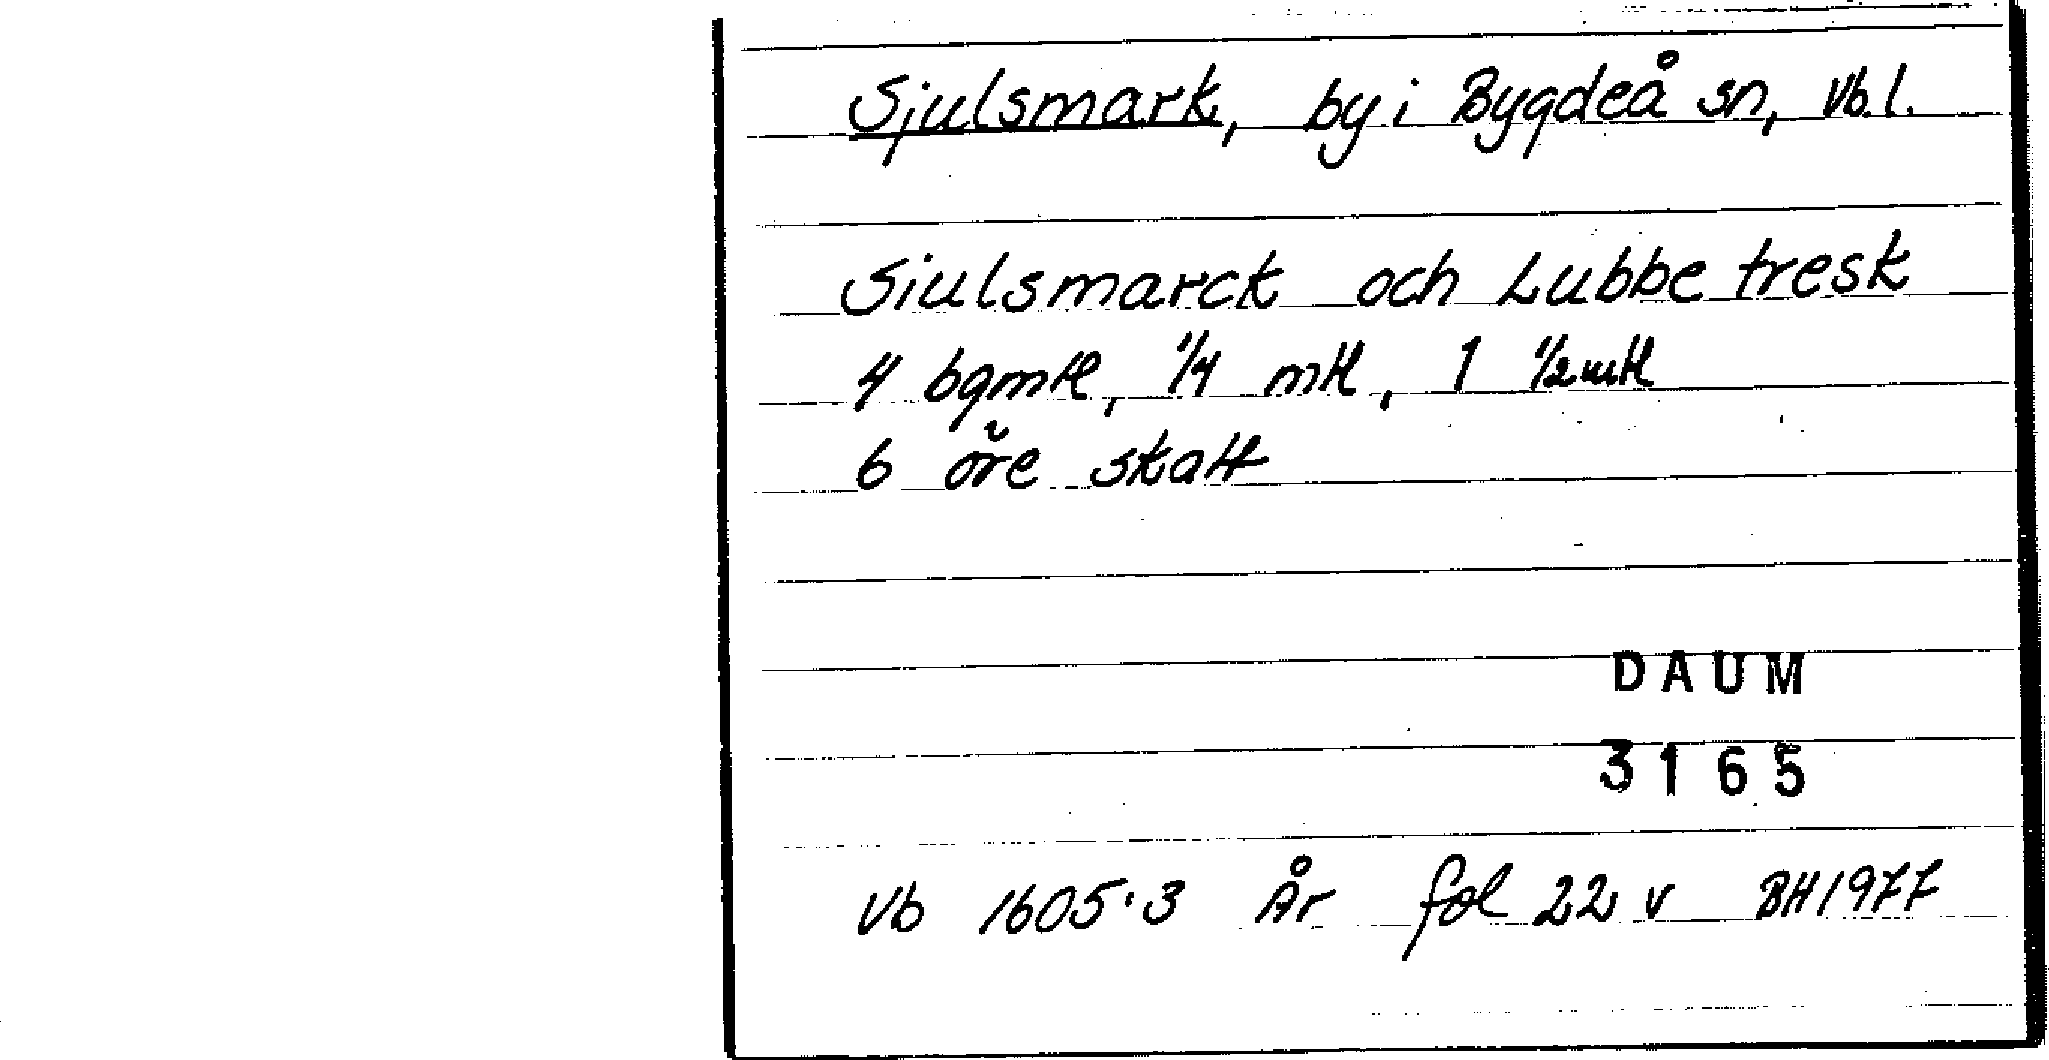 Sjulsmark, by i Bygdeå sn, Vb.l.
Siulsmarck och Lubbe tresk
4 bgmtl, 1/4 mtl, 1 1/2 mtl
6 öre skatt
DAUM
3165
Vb 1605:3 År fol 22 v BH1977